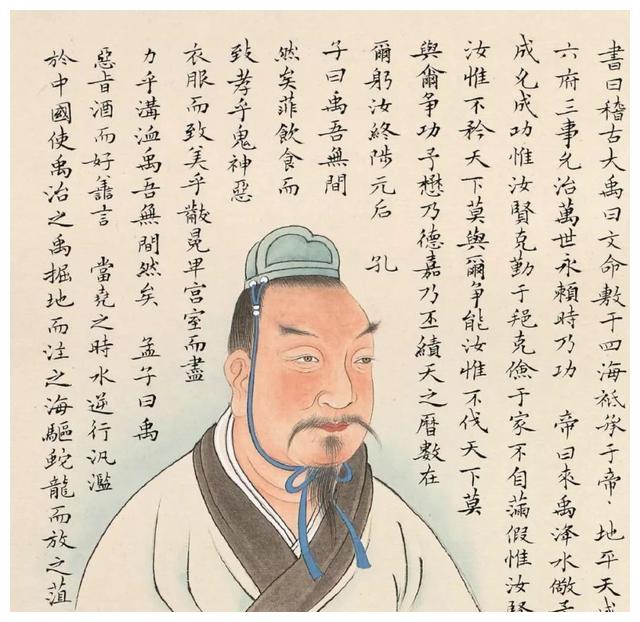 書曰稽古大禹曰文命敷于四海祗承于帝﹑地平天成
六府三事允治萬世永賴時乃功 帝曰來禹洚水儆予
成允成功惟汝賢克勤于邦克儉于家不自滿假惟汝賢
汝惟不矜天下莫與爾爭能汝惟不伐天下莫
與爾爭功予懋乃德嘉乃丕績天之曆數在
爾躬汝終陟元后 孔
子曰禹吾無間
然矣菲飲食而
致孝乎鬼神惡
衣服而致美乎黻冕卑宮室而盡
力乎溝洫禹吾無間然矣 孟子曰禹
惡旨酒而好譱言 當堯之時水逆行汎濫
於中國使禹治之禹掘地而注之海驅蛇龍而放之菹